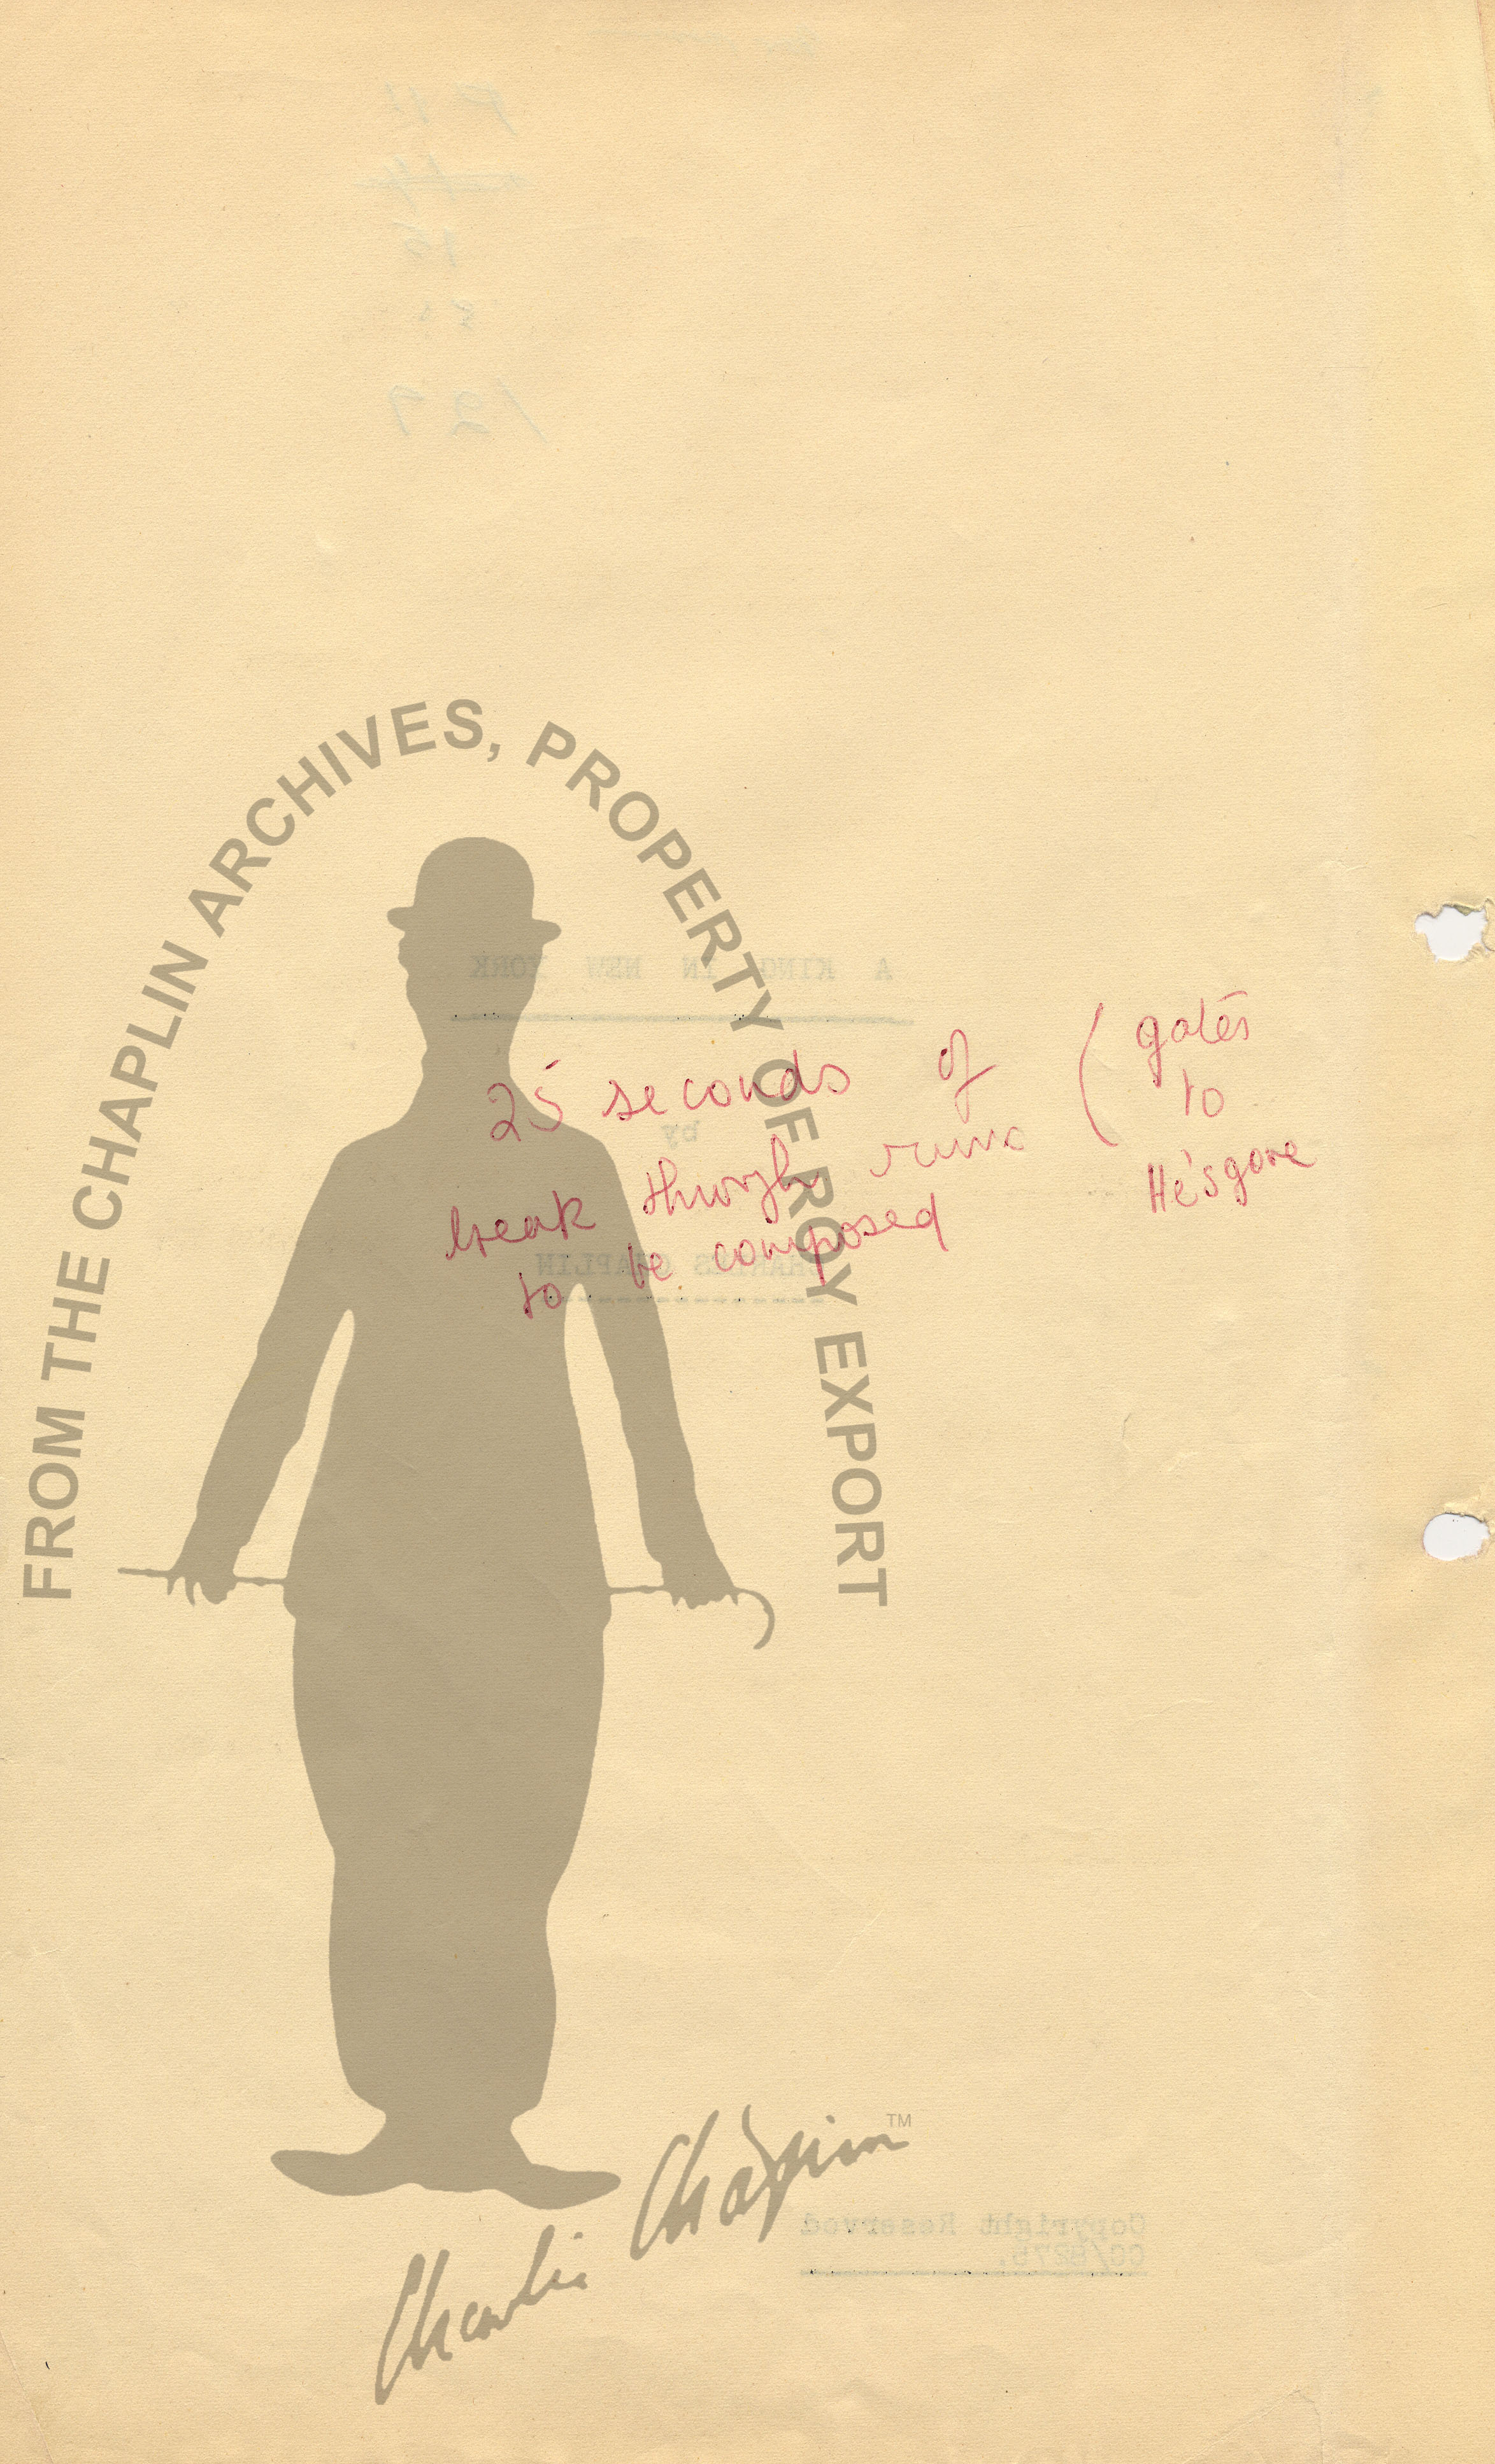 FROM THE CHAPLIN ARCHIVES, PROPERTY OF ROY EXPORT
A KING IN NEW YORK
25 seconds of
break through
to be composed
(gates
to
He's gone
by
CHARLES CHAPLIN
Charlie Chaplin™
Copyright Reserved